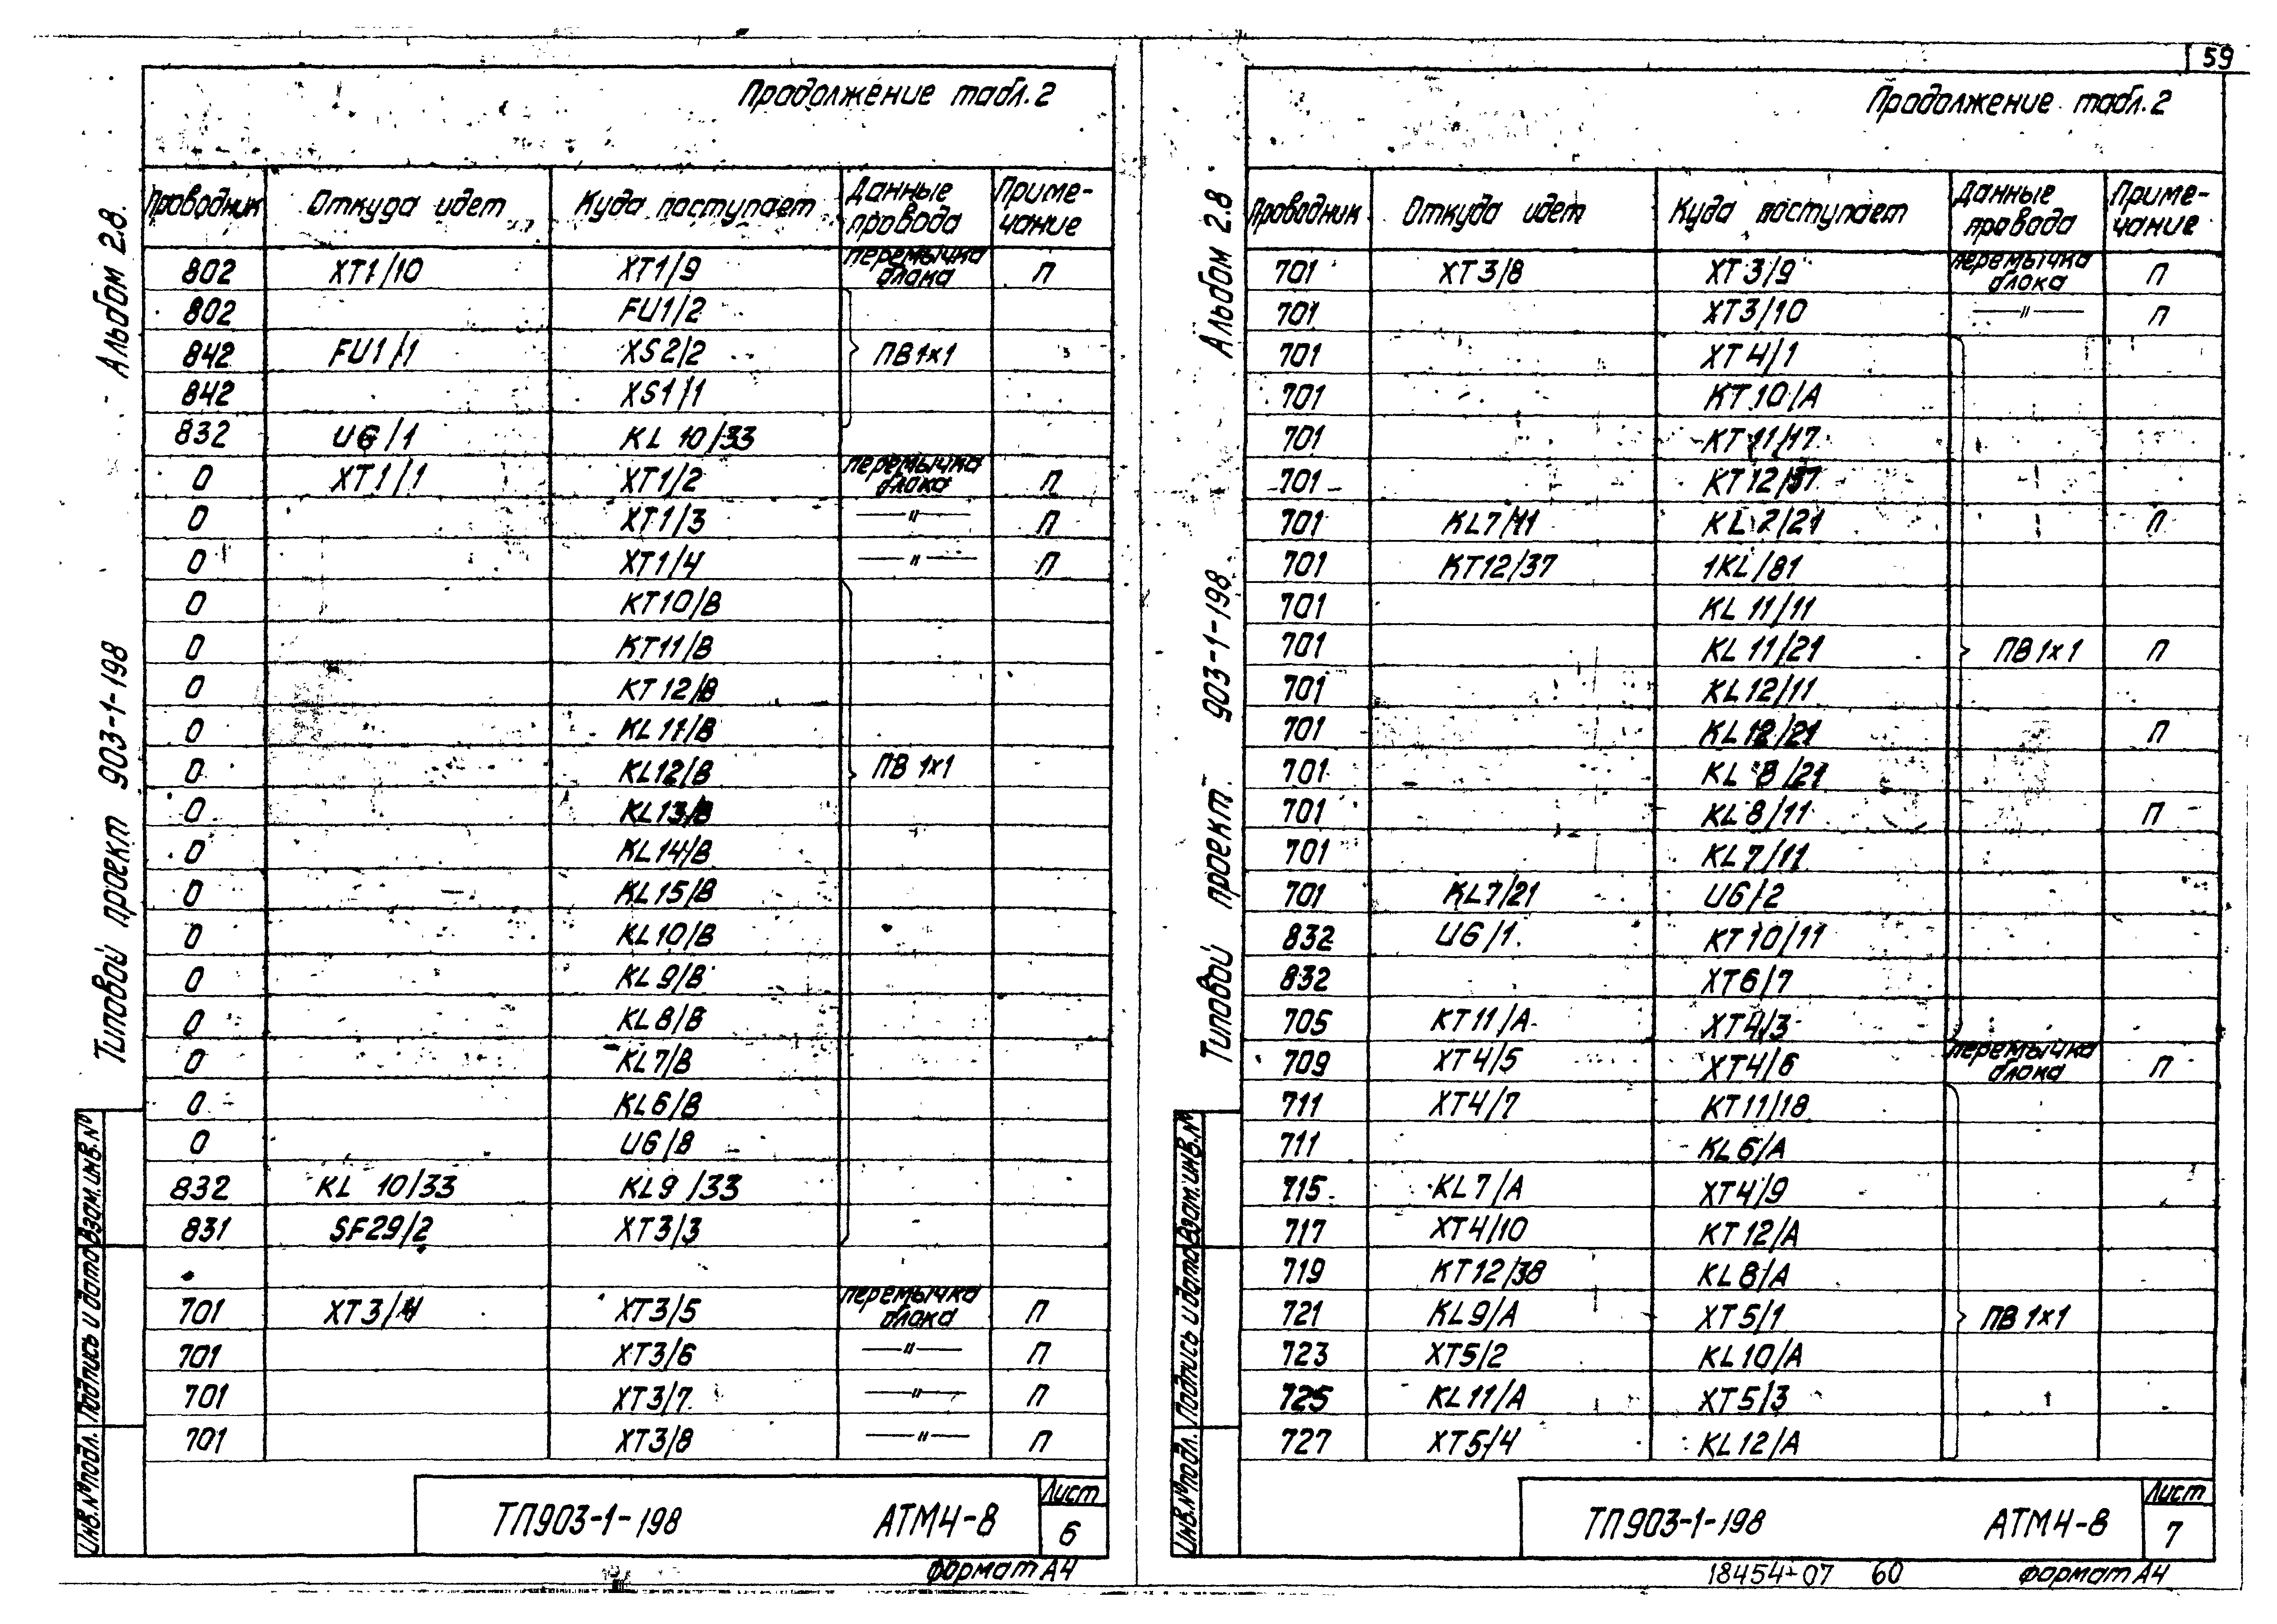 59
Продолжение табл. 2
Проводник Откуда идет Куда поступает Данные провода Примечание
802 XT1/10 XT1/9 перемычка блока П
802 FU1/2
842 FU1/1 XS2/2 ПВ 1×1
842 XS1/1
832 UG/1 KL 10/33
0 XT1/1 XT1/2 перемычка блока П
0 XT1/3 —"— П
0 XT1/4 —"— П
0 KT10/B
0 KT11/B
0 KT12/B
0 KL11/B
0 KL12/B ПВ 1×1
0 KL13/B
0 KL14/B
0 KL15/B
0 KL10/B
0 KL9/B
0 KL8/B
0 KL7/B
0 KL6/B
0 UG/8
832 KL 10/33 KL9/33
831 SF29/2 XT3/3
701 XT3/4 XT3/5 перемычка блока П
701 XT3/6 —"— П
701 XT3/7 —"— П
701 XT3/8 —"— П
ТП903-1-198 АТМ4-8 Лист 6
Формат А4
Альбом 2.8
Типовой проект 903-1-198
Инв.№подл. Подпись и дата Взам.инв.№
Продолжение табл. 2
Проводник Откуда идет Куда поступает Данные провода Примечание
701 XT3/8 XT3/9 перемычка блока П
701 XT3/10 —"— П
701 XT4/1
701 KT10/A
701 KT11/17
701 KT12/37
701 KL7/11 KL7/21 П
701 KT12/37 1KL/81
701 KL11/11
701 KL11/21 ПВ 1×1 П
701 KL12/11
701 KL12/21 П
701 KL8/21
701 KL8/11 П
701 KL7/11
701 KL7/21 UG/2
832 UG/1 KT10/11
832 XT6/7
705 KT11/A XT4/3
709 XT4/5 XT4/6 перемычка блока П
711 XT4/7 KT11/18
711 KL6/A
715 KL7/A XT4/9
717 XT4/10 KT12/A
719 KT12/38 KL8/A
721 KL9/A XT5/1 ПВ 1×1
723 XT5/2 KL10/A
725 KL11/A XT5/3
727 XT5/4 KL12/A
ТП903-1-198 АТМ4-8 Лист 7
18454-07 60 Формат А4
Альбом 2.8
Типовой проект 903-1-198
Инв.№подл. Подпись и дата Взам.инв.№